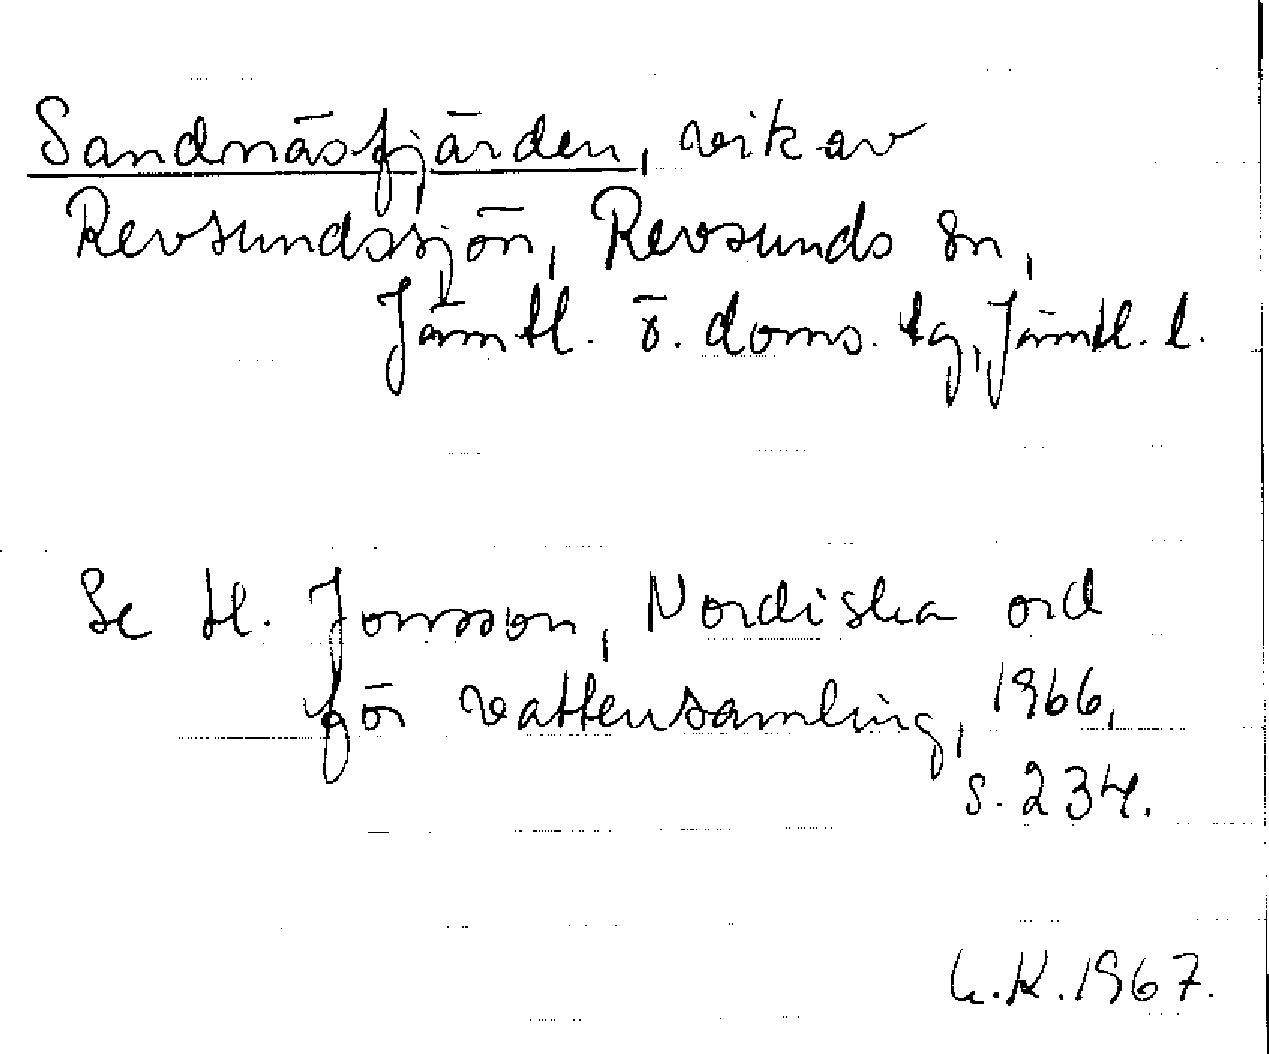 Sandnäsfjärden, vik av
Revsundssjön, Revsunds sn,
Jämtl. ö. doms. tg, Jämtl. l.
Se H. Jonsson, Nordiska ord
för vattensamling, 1966,
s. 234.
K. 1967.